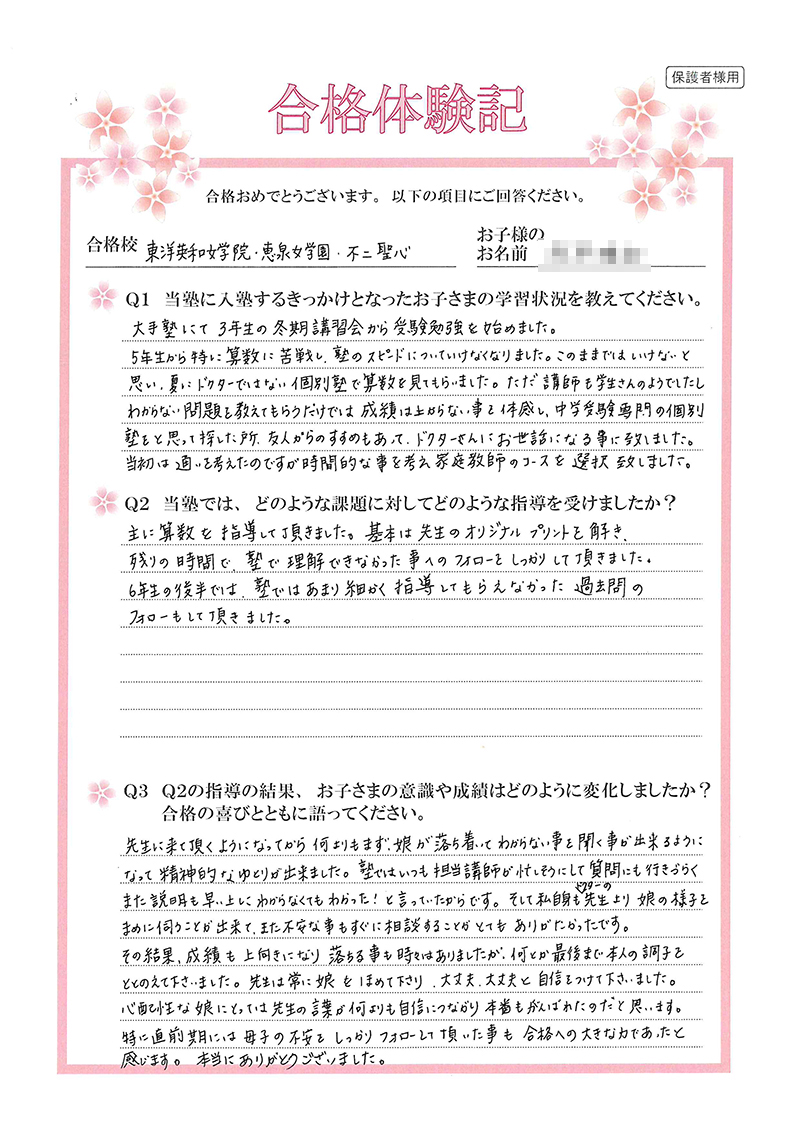 保護者様用
合格体験記
合格おめでとうございます。以下の項目にご回答ください。
合格校 東洋英和女学院・恵泉女学園・不二聖心
お子様の
お名前
Q1 当塾に入塾するきっかけとなったお子さまの学習状況を教えてください。
大手塾にて3年生の冬期講習会から受験勉強を始めました。
5年生から特に算数に苦戦し、塾のスピードについていけなくなりました。このままではいけないと
思い、夏にドクターではない個別塾で算数を見てもらいました。ただ講師も学生さんのようでしたし
わからない問題を教えてもらうだけでは成績は上がらない事を体感し、中学受験専門の個別
塾をと思って探した所、友人からのすすめもあって、ドクターさんにお世話になる事に致しました。
当初は通いを考えたのですが時間的な事を考え家庭教師のコースを選択致しました。
Q2 当塾では、どのような課題に対してどのような指導を受けましたか？
主に算数を指導して頂きました。基本は先生のオリジナルプリントを解き、
残りの時間で、塾で理解できなかった事へのフォローをしっかりして頂きました。
6年生の後半では、塾ではあまり細かく指導してもらえなかった過去問の
フォローもして頂きました。
Q3 Q2の指導の結果、お子さまの意識や成績はどのように変化しましたか？
合格の喜びとともに語ってください。
先生に来て頂くようになってから何よりもまず、娘が落ち着いてわからない事を聞く事が出来るように
なって精神的なゆとりが出来ました。塾ではいつも担当講師が忙しそうにして質問にも行きづらく
また説明も早い上にわからなくてもわかった！と言っていたからです。そして私自身もドクターの先生より娘の様子を
まめに伺うことが出来て、また不安な事もすぐに相談することがとてもありがたかったです。
その結果、成績も上向きになり落ちる事も時々はありましたが、何とか最後まで本人の調子を
ととのえて下さいました。先生は常に娘をほめて下さり、大丈夫、大丈夫と自信をつけて下さいました。
心配性な娘にとっては先生の言葉が何よりも自信につながり本番もがんばれたのだと思います。
特に直前期には母子の不安をしっかりフォローして頂いた事も合格への大きな力であったと
感じます。本当にありがとうございました。